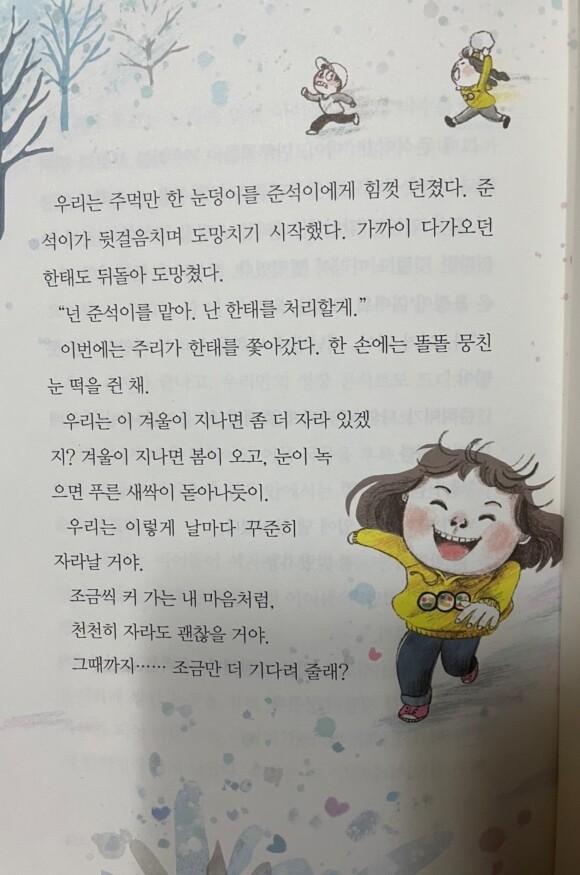 우리는 주먹만 한 눈덩이를 준석이에게 힘껏 던졌다. 준
석이가 뒷걸음치며 도망치기 시작했다. 가까이 다가오던
한태도 뒤돌아 도망쳤다.
“넌 준석이를 맡아. 난 한태를 처리할게.”
이번에는 주리가 한태를 쫓아갔다. 한 손에는 똘똘 뭉친
눈 떡을 쥔 채.
우리는 이 겨울이 지나면 좀 더 자라 있겠
지? 겨울이 지나면 봄이 오고, 눈이 녹
으면 푸른 새싹이 돋아나듯이.
우리는 이렇게 날마다 꾸준히
자라날 거야.
조금씩 커 가는 내 마음처럼,
천천히 자라도 괜찮을 거야.
그때까지…… 조금만 더 기다려 줄래?